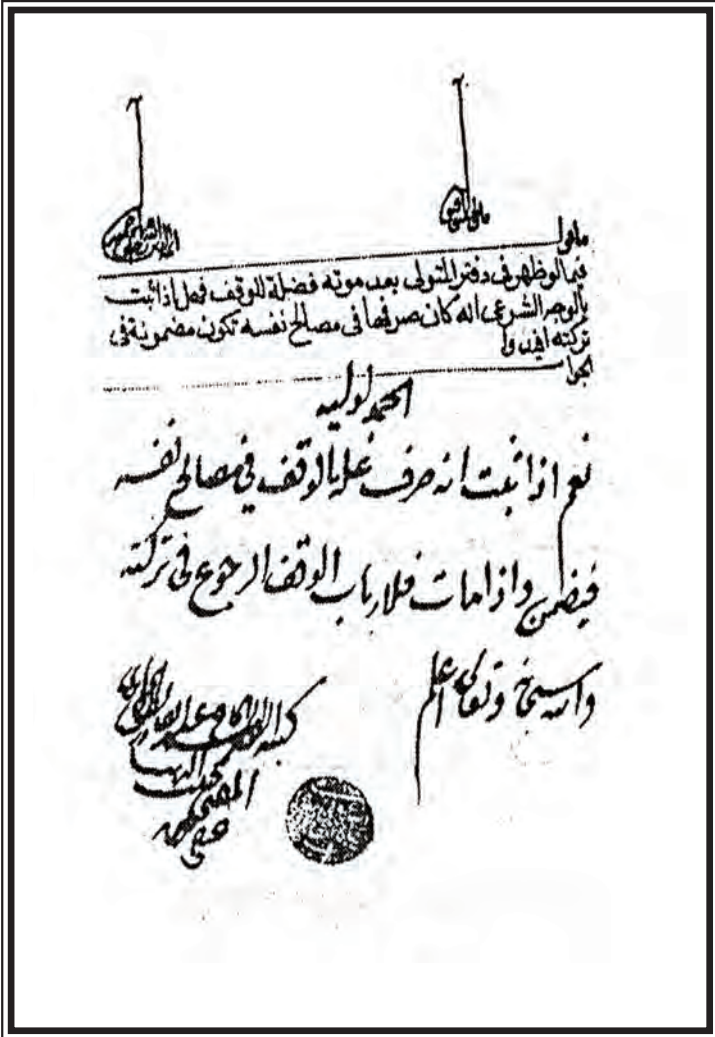 ما قولكم
فيما لو ظهر فى دفتر المتولى بعد موته فضلة للوقف فهل اذا ثبت
بالوجه الشرعى انه كان صرفها فى مصالح نفسه تكون مضمونة فى
تركته افيدوا
الجواب
الحمد لوليه
نعم اذا ثبت انه صرف غلة الوقف في مصالح نفسه
فيضمن واذا مات فلارباب الوقف الرجوع فى تركته
والله سبحانه وتعالى اعلم
كتبه الفقير
المفتي